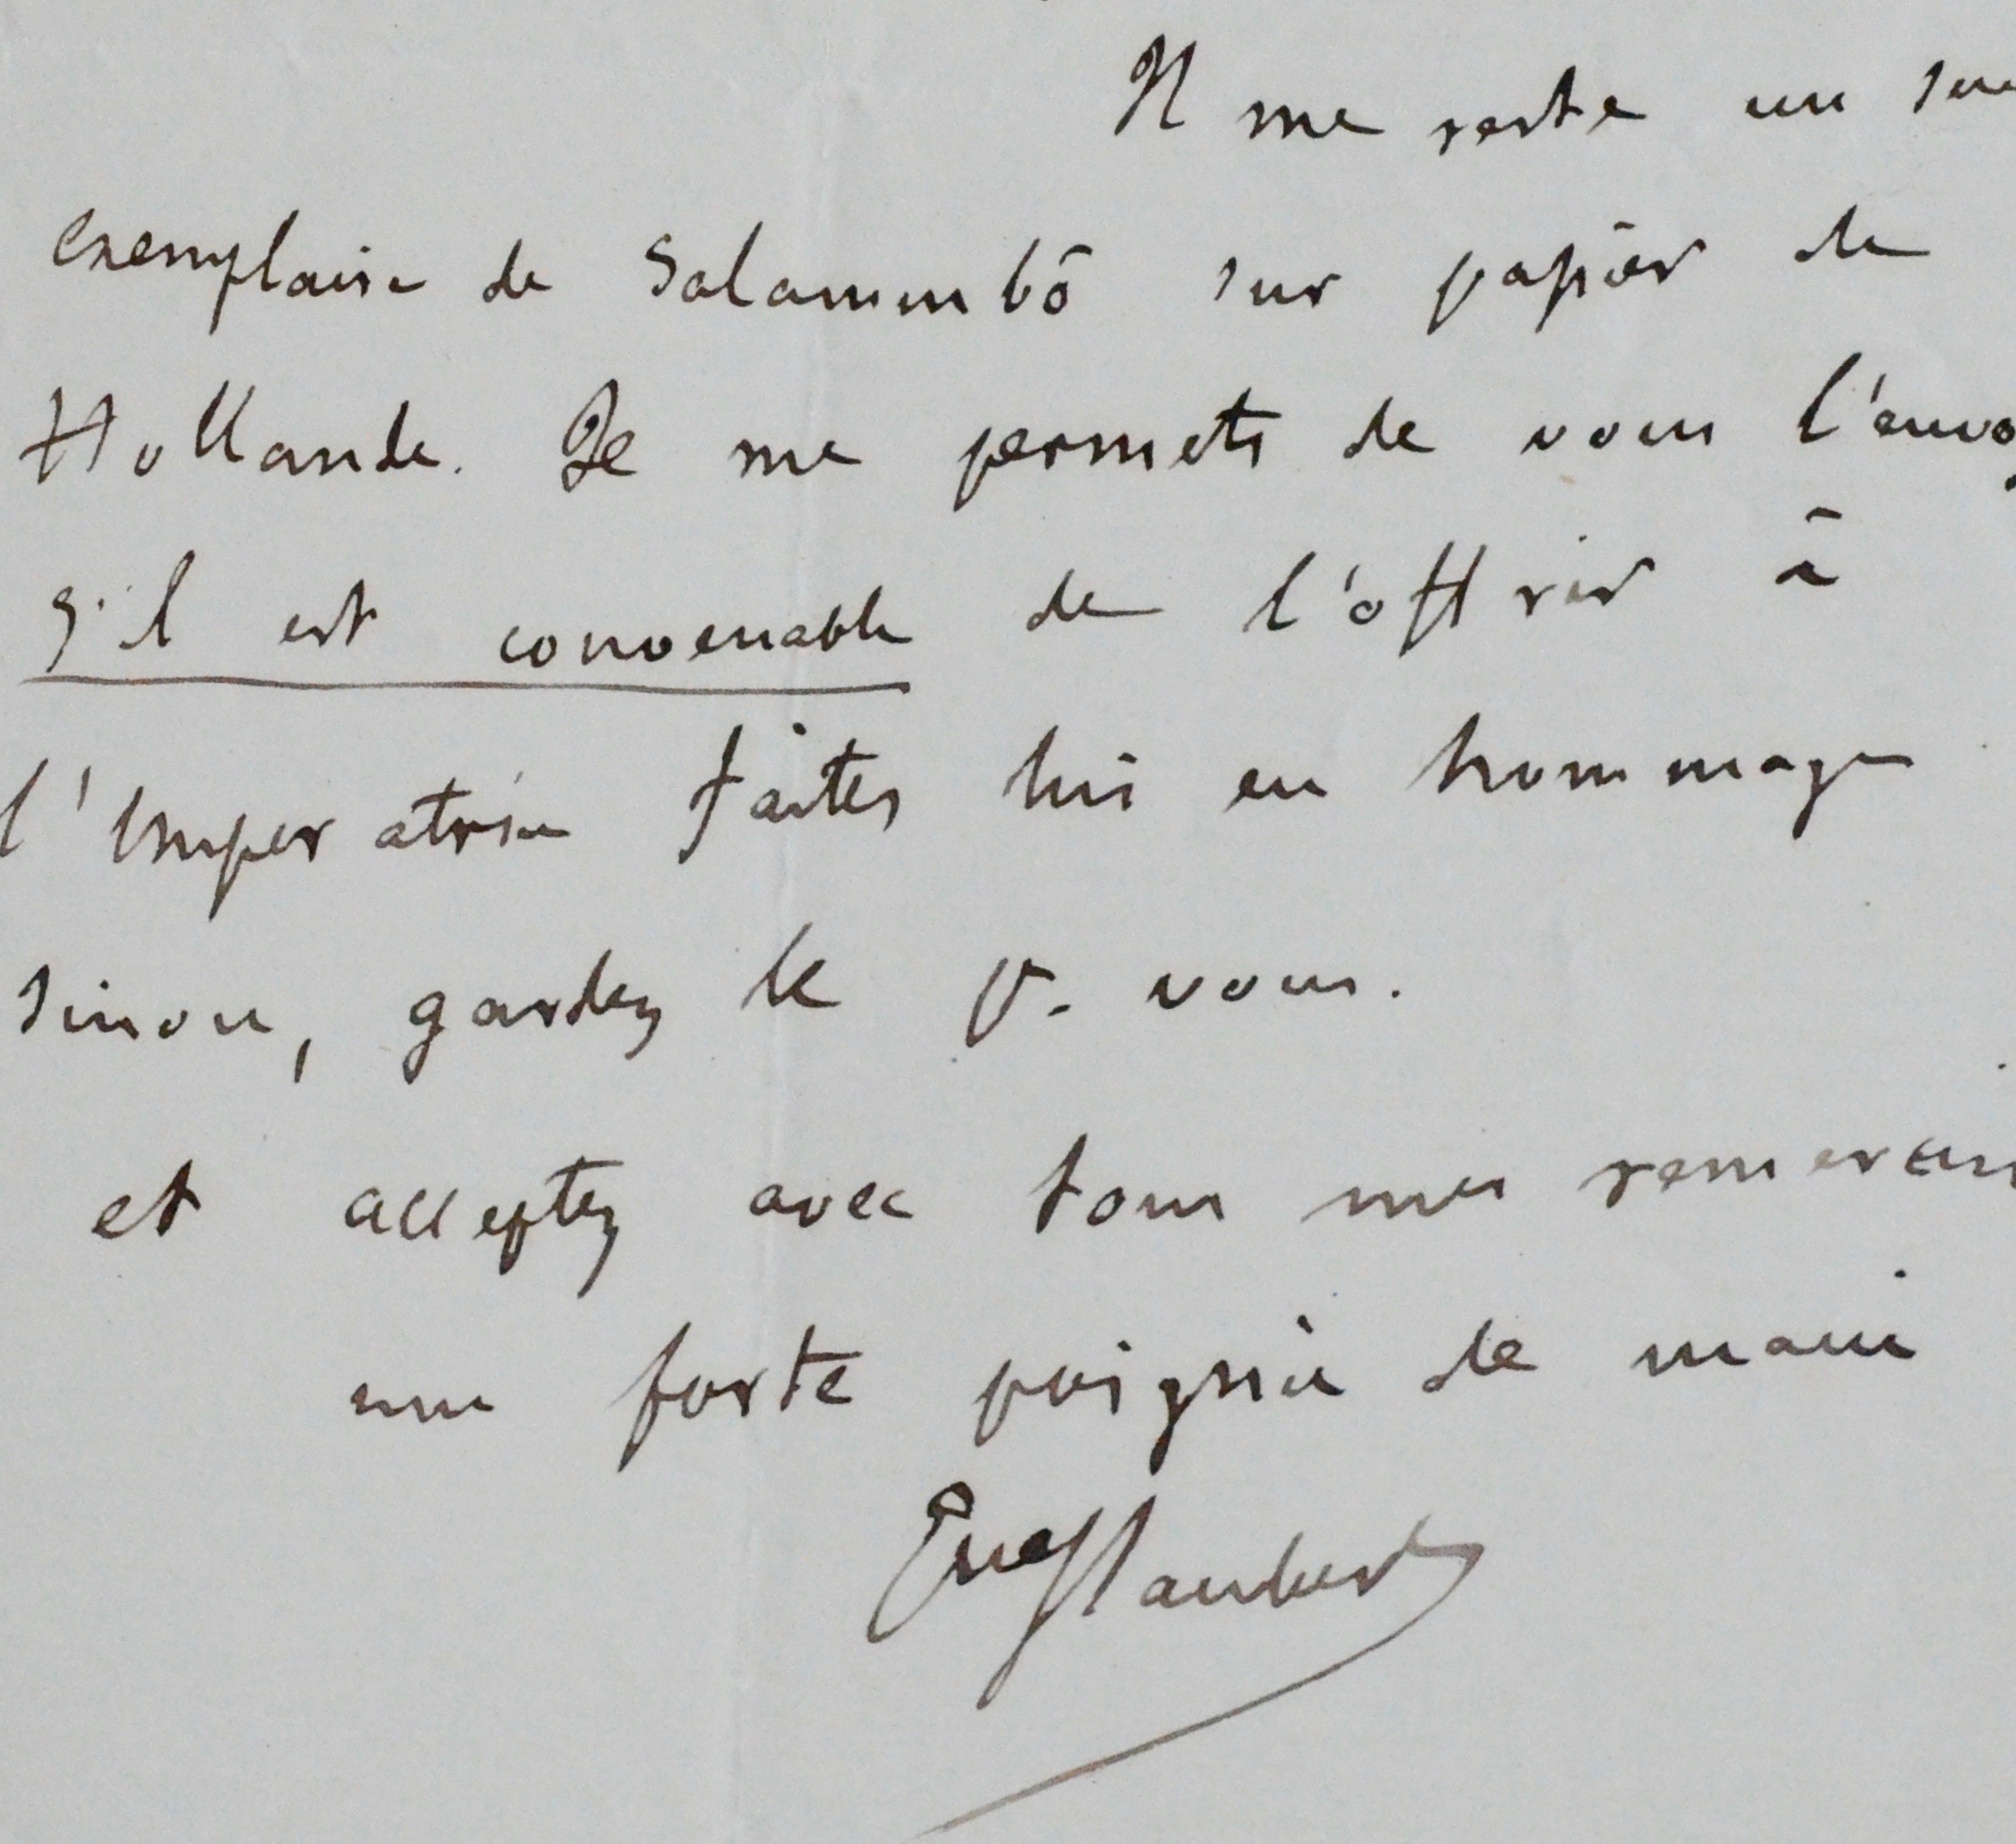 Il me reste un seu
exemplaire de Salammbô sur papier de
Hollande. Je me permets de vous l'envo
s'il est convenable de l'offrir à
l'Imperatrice faites lui en hommage
sinon, gardez le p. vous.
et acceptez avec tous mes remerci
une forte poignée de main
Gve Flaubert